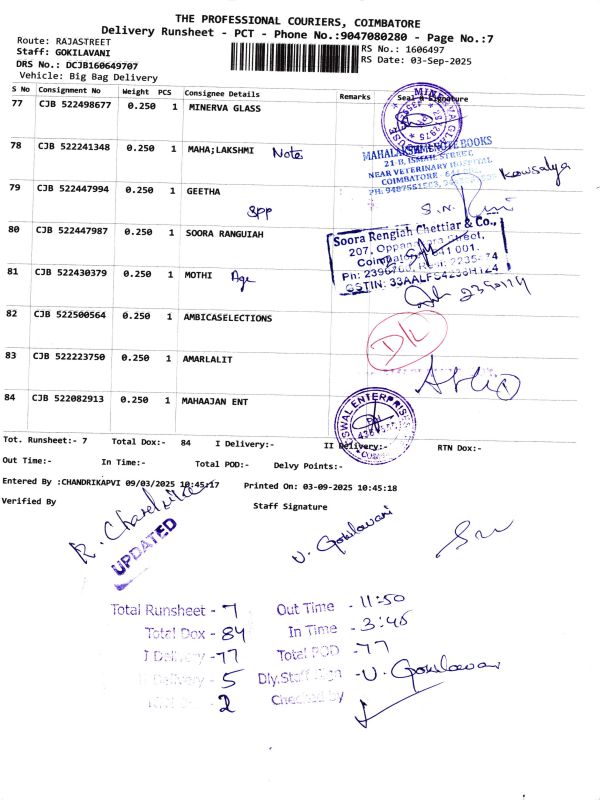 THE PROFESSIONAL COURIERS, COIMBATORE
Delivery Runsheet - PCT - Phone No.:9047080280 - Page No.:7
Route: RAJASTREET
Staff: GOKILAVANI
DRS No.: DCJB160649707
Vehicle: Big Bag Delivery
RS No.: 1606497
RS Date: 03-Sep-2025
S No Consignment No Weight PCS Consignee Details Remarks Seal & Signature
77 CJB 522498677 0.250 1 MINERVA GLASS
78 CJB 522241348 0.250 1 MAHA;LAKSHMI Note
MAHALAKSHMI NOTE BOOKS
21 B, ISMAIL STREET,
NEAR VETERINARY HOSPITAL
COIMBATORE
Kowsalya
79 CJB 522447994 0.250 1 GEETHA
SPP
80 CJB 522447987 0.250 1 SOORA RANGUIAH
Soora Rengiah Chettiar & Co.,
207, Oppanakara Street,
Coimbatore - 641 001.
81 CJB 522430379 0.250 1 MOTHI
82 CJB 522500564 0.250 1 AMBICASELECTIONS
D/L
83 CJB 522223750 0.250 1 AMARLALIT
84 CJB 522082913 0.250 1 MAHAAJAN ENT
Tot. Runsheet:- 7 Total Dox:- 84 I Delivery:- II Delivery:- RTN Dox:-
Out Time:- In Time:- Total POD:- Delvy Points:-
Entered By :CHANDRIKAPVI 09/03/2025 10:45:17 Printed On: 03-09-2025 10:45:18
Verified By Staff Signature
R. Chandrika
UPDATED
U. Gokilavani
Total Runsheet - 7 Out Time - 11:50
Total Dox - 84 In Time - 3:45
I Delivery - 77 Total POD - 77
Delivery - 5 Dly.Staff Sign - U. Gokilavani
2 Checked by